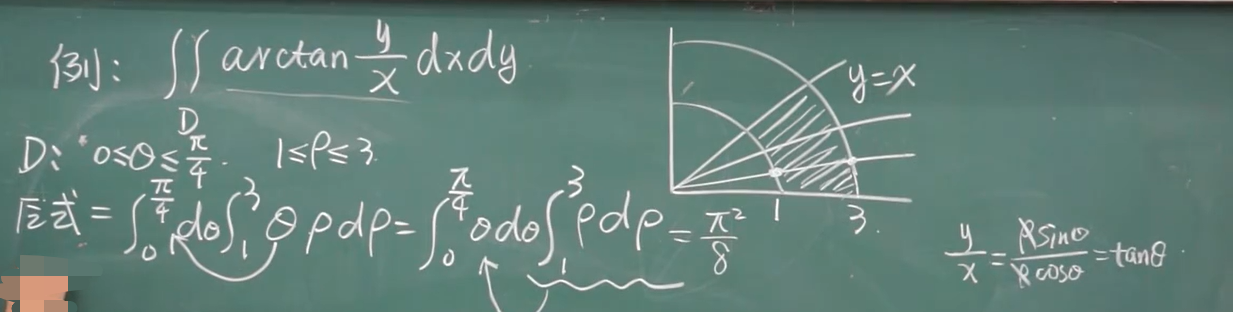 例: ∬_D arctan y/x dxdy
D: 0≤θ≤π/4. 1≤ρ≤3
原式 = ∫_0^{π/4} dθ ∫_1^3 θ ρ dρ = ∫_0^{π/4} θ dθ ∫_1^3 ρ dρ = π²/8
y=x
1 3.
y/x = ρsinθ/ρcosθ = tanθ.